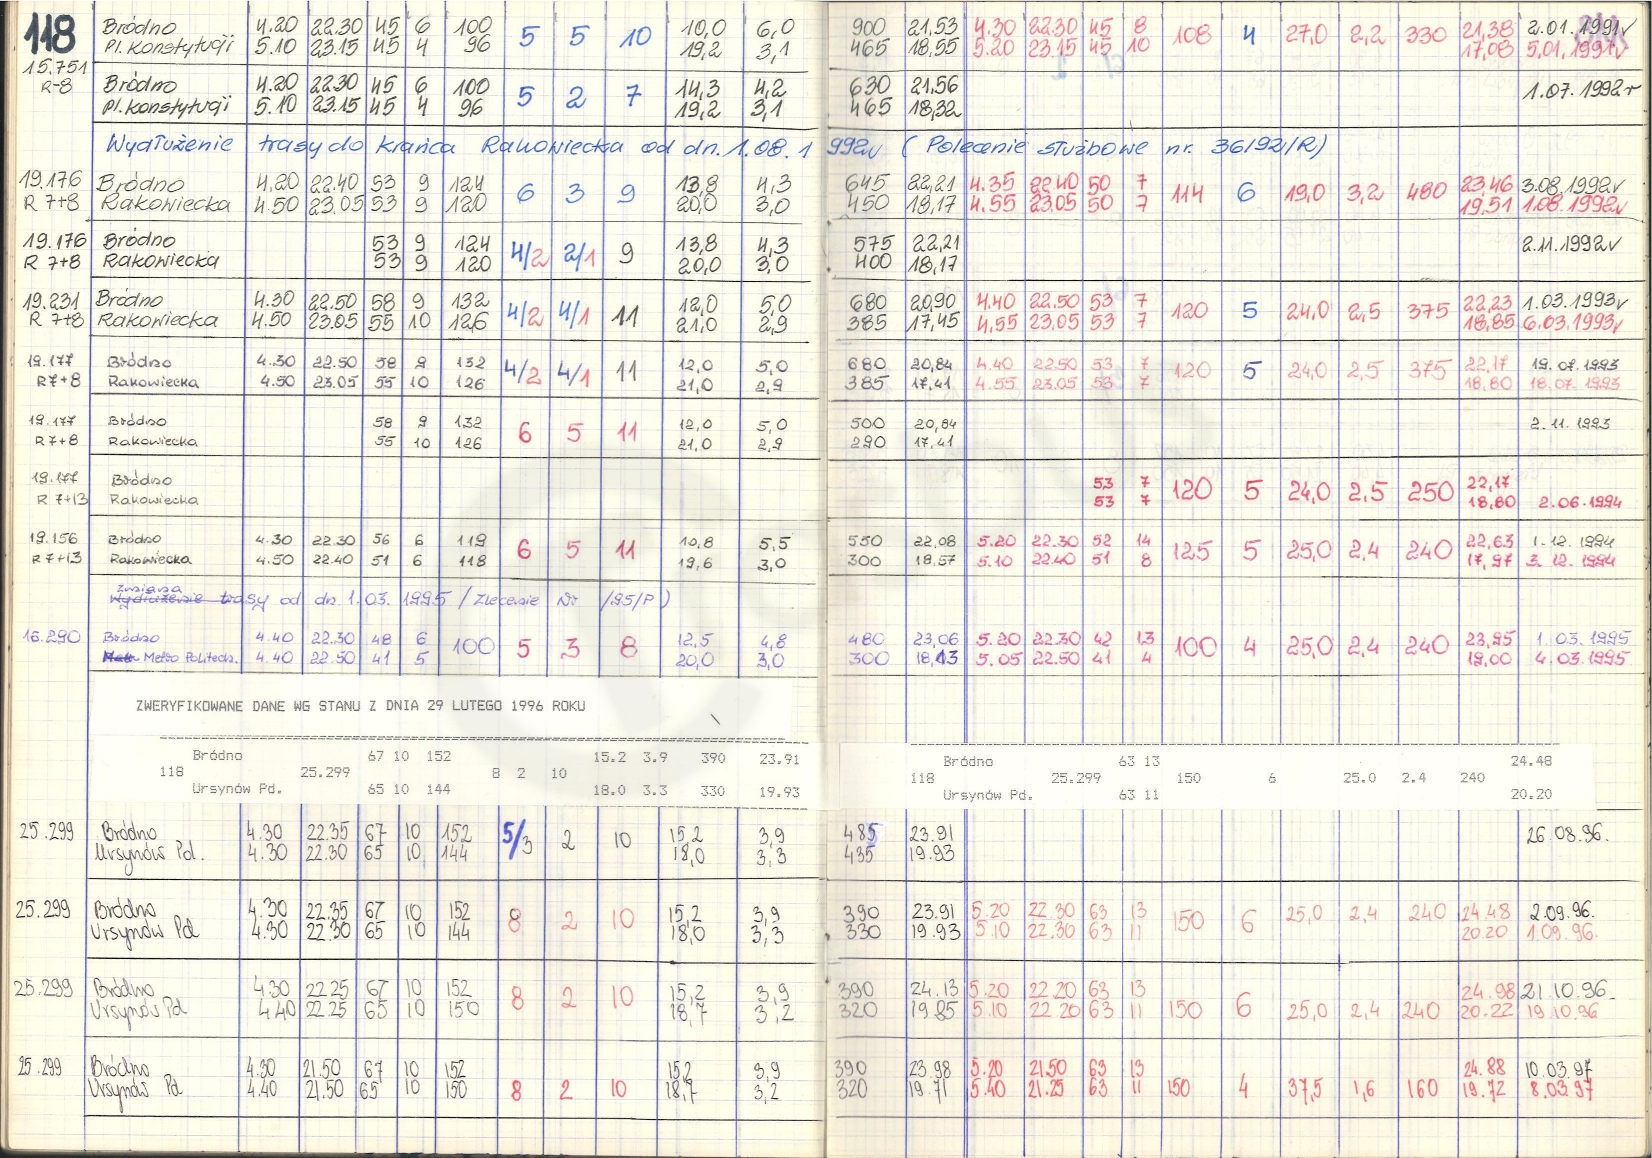 118 Bródno 4.20 22.30 45 6 100 5 5 10 10,0 6,0 900 21,53 4.30 22.30 45 8 108 4 27,0 2,2 330 21,38 2.01.1991r
Pl. Konstytucji 5.10 23.15 45 4 96 19,2 3,1 465 18,55 5.20 23.15 45 10 17,08 5,01,1991r
15.751 Bródno 4.20 22.30 45 6 100 5 2 7 14,3 4,2 630 21,56 1.07.1992r
R-8 Pl. Konstytucji 5.10 23.15 45 4 96 19,2 3,1 465 18,32
Wydłużenie trasy do krańca Rakowiecka od dn. 1.08.1992r (Polecenie służbowe nr. 36/92/R)
19.176 Bródno 4.20 22.40 53 9 124 6 3 9 13,8 4,3 645 22,21 4.35 22.40 50 7 114 6 19,0 3,2 480 23,46 3.08.1992r
R 7+8 Rakowiecka 4.50 23.05 53 9 120 20,0 3,0 450 18,17 4.55 23.05 50 7 19,51 1.08.1992r
19.176 Bródno 53 9 124 4/2 2/1 9 13,8 4,3 575 22,21 2.11.1992r
R 7+8 Rakowiecka 53 9 120 20,0 3,0 400 18,17
19.231 Bródno 4.30 22.50 58 9 132 4/2 4/1 11 12,0 5,0 680 20,90 4.40 22.50 53 7 120 5 24,0 2,5 375 22,23 1.03.1993r
R 7+8 Rakowiecka 4.50 23.05 55 10 126 21,0 2,9 385 17,45 4,55 23,05 53 7 18,85 6.03.1993r
19.177 Bródno 4.30 22.50 58 9 132 4/2 4/1 11 12,0 5,0 680 20,84 4.40 22.50 53 7 120 5 24,0 2,5 375 22,17 19.07.1993
R7+8 Rakowiecka 4.50 23.05 55 10 126 21,0 2,9 385 17,41 4.55 23.05 53 7 18,80 18.07.1993
19.177 Bródno 58 9 132 6 5 11 12,0 5,0 500 20,84 2.11.1993
R7+8 Rakowiecka 55 10 126 21,0 2,9 290 17,41
19.177 Bródno 53 7 120 5 24,0 2,5 250 22,17
R 7+13 Rakowiecka 53 7 18,80 2.06.1994
19.156 Bródno 4.30 22.30 56 6 119 6 5 11 10,8 5,5 550 22,08 5.20 22.30 52 14 125 5 25,0 2,4 240 22,63 1.12.1994
R7+13 Rakowiecka 4.50 22.40 51 6 118 19,6 3,0 300 18,57 5.10 22.40 51 8 17,97 3.12.1994
zmiana
Wydłużenie trasy od dn. 1.03.1995 / Zlecenie Nr /95/P)
16.290 Bródno 4.40 22.30 48 6 100 5 3 8 12,5 4,8 480 23,06 5.20 22.30 42 13 100 4 25,0 2,4 240 23,95 1.03.1995
Metro Politechn. 4.40 22.50 41 5 20,0 3,0 300 18,13 5.05 22.50 41 4 19,00 4.03.1995
ZWERYFIKOWANE DANE WG STANU Z DNIA 29 LUTEGO 1996 ROKU
Bródno 67 10 152 15.2 3.9 390 23.91 Bródno 63 13 24.48
118 25.299 8 2 10 118 25.299 150 6 25.0 2.4 240
Ursynów Pd. 65 10 144 18.0 3.3 330 19.93 Ursynów Pd. 63 11 20.20
25.299 Bródno 4.30 22.35 67 10 152 5/3 2 10 15,2 3,9 485 23.91 26.08.96.
Ursynów Pd. 4.30 22.30 65 10 144 18,0 3,3 435 19.93
25.299 Bródno 4.30 22.35 67 10 152 8 2 10 15,2 3,9 390 23.91 5.20 22.30 63 13 150 6 25,0 2,4 240 24.48 2.09.96.
Ursynów Pd 4.30 22.30 65 10 144 18,0 3,3 330 19.93 5.10 22.30 63 11 20.20 1.09.96.
25.299 Bródno 4.30 22.25 67 10 152 8 2 10 15,2 3,9 390 24.13 5.20 22.20 63 13 150 6 25,0 2,4 240 24.98 21.10.96.
Ursynów Pd 4.40 22.25 65 10 150 18,7 3,2 320 19.85 5.10 22 20 63 11 20.22 19.10.96
25.299 Bródno 4.30 21.50 67 10 152 8 2 10 15,2 3,9 390 23.98 5.20 21.50 63 13 150 4 37,5 1,6 160 24.88 10.03.97
Ursynów Pd 4.40 21.50 65 10 150 18,7 3,2 320 19.71 5.40 21.25 63 11 19.72 8.03.97